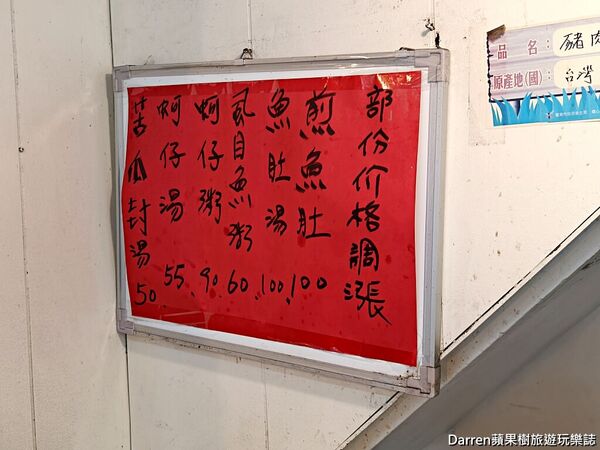 部份价格調漲
煎魚肚 100
魚肚湯 100
虱目魚粥 60
蚵仔粥 90
蚵仔湯 55
苦瓜封湯 50
品名：豬肉
原產地(國)：台灣
Darren蘋果樹旅遊玩樂誌